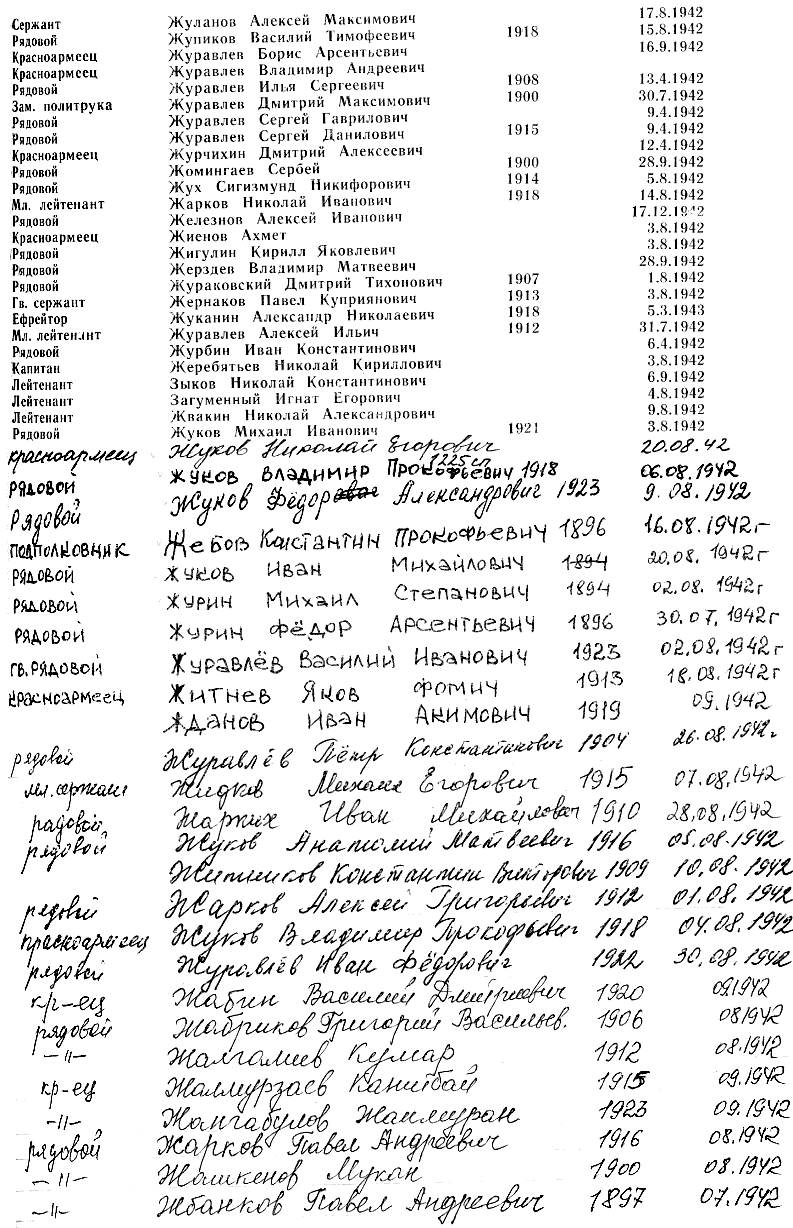 Сержант Жуланов Алексей Максимович 17.8.1942
Рядовой Жупиков Василий Тимофеевич 1918 15.8.1942
Красноармеец Журавлев Борис Арсентьевич 16.9.1942
Красноармеец Журавлев Владимир Андреевич
Рядовой Журавлев Илья Сергеевич 1908 13.4.1942
Зам. политрука Журавлев Дмитрий Максимович 1900 30.7.1942
Рядовой Журавлев Сергей Гаврилович 9.4.1942
Рядовой Журавлев Сергей Данилович 1915 9.4.1942
Красноармеец Журчихин Дмитрий Алексеевич 12.4.1942
Рядовой Жомингаев Сербей 1900 28.9.1942
Рядовой Жух Сигизмунд Никифорович 1914 5.8.1942
Мл. лейтенант Жарков Николай Иванович 1918 14.8.1942
Рядовой Железнов Алексей Иванович 17.12.1942
Красноармеец Жиенов Ахмет 3.8.1942
Рядовой Жигулин Кирилл Яковлевич 3.8.1942
Рядовой Жерздев Владимир Матвеевич 28.9.1942
Рядовой Жураковский Дмитрий Тихонович 1907 1.8.1942
Гв. сержант Жернаков Павел Куприянович 1913 3.8.1942
Ефрейтор Жуканин Александр Николаевич 1918 5.3.1943
Мл. лейтенант Журавлев Алексей Ильич 1912 31.7.1942
Рядовой Журбин Иван Константинович 6.4.1942
Капитан Жеребятьев Николай Кириллович 3.8.1942
Лейтенант Зыков Николай Константинович 6.9.1942
Лейтенант Загуменный Игнат Егорович 4.8.1942
Лейтенант Жвакин Николай Александрович 9.8.1942
Рядовой Жуков Михаил Иванович 1921 3.8.1942
красноармеец Жуков Николай Егорович 20.08.42
1225 сп
рядовой Жуков Владимир Прокофьевич 1918 06.08.1942
Рядовой Жуков Фёдор Александрович 1923 9.08.1942
подполковник Жебов Константин Прокофьевич 1896 16.08.1942г
рядовой Жуков Иван Михайлович 1894 20.08.1942г
рядовой Журин Михаил Степанович 1894 02.08.1942г
рядовой Журин Фёдор Арсентьевич 1896 30.07.1942г
гв.рядовой Журавлёв Василий Иванович 1923 02.08.1942г
красноармеец Житнев Яков Фомич 1913 18.08.1942г
Жданов Иван Акимович 1919 09.1942
рядовой Журавлёв Пётр Константинович 1904 26.08.1942г
мл.сержант Жидков Михаил Егорович 1915 07.08.1942
рядовой Жарких Иван Михайлович 1910 28.08.1942
рядовой Жуков Анатолий Матвеевич 1916 05.08.1942
Житников Константин Викторович 1909 10.08.1942
рядовой Жарков Алексей Григорьевич 1912 01.08.1942
красноармеец Жуков Владимир Прокофьевич 1918 04.08.1942
рядовой Журавлёв Иван Фёдорович 1922 30.08.1942
кр-ец Жабин Василий Дмитриевич 1920 09.1942
рядовой Жабриков Григорий Васильев. 1906 08.1942
—11— Жалгалиев Кумар 1912 08.1942
кр-ец Жалмурзаев Канибай 1915 09.1942
—11— Жангабулов Жанмуран 1923 09.1942
рядовой Жарков Павел Андреевич 1916 08.1942
—11— Жашкенов Мукан 1900 08.1942
—11— Жбанков Павел Андреевич 1897 07.1942